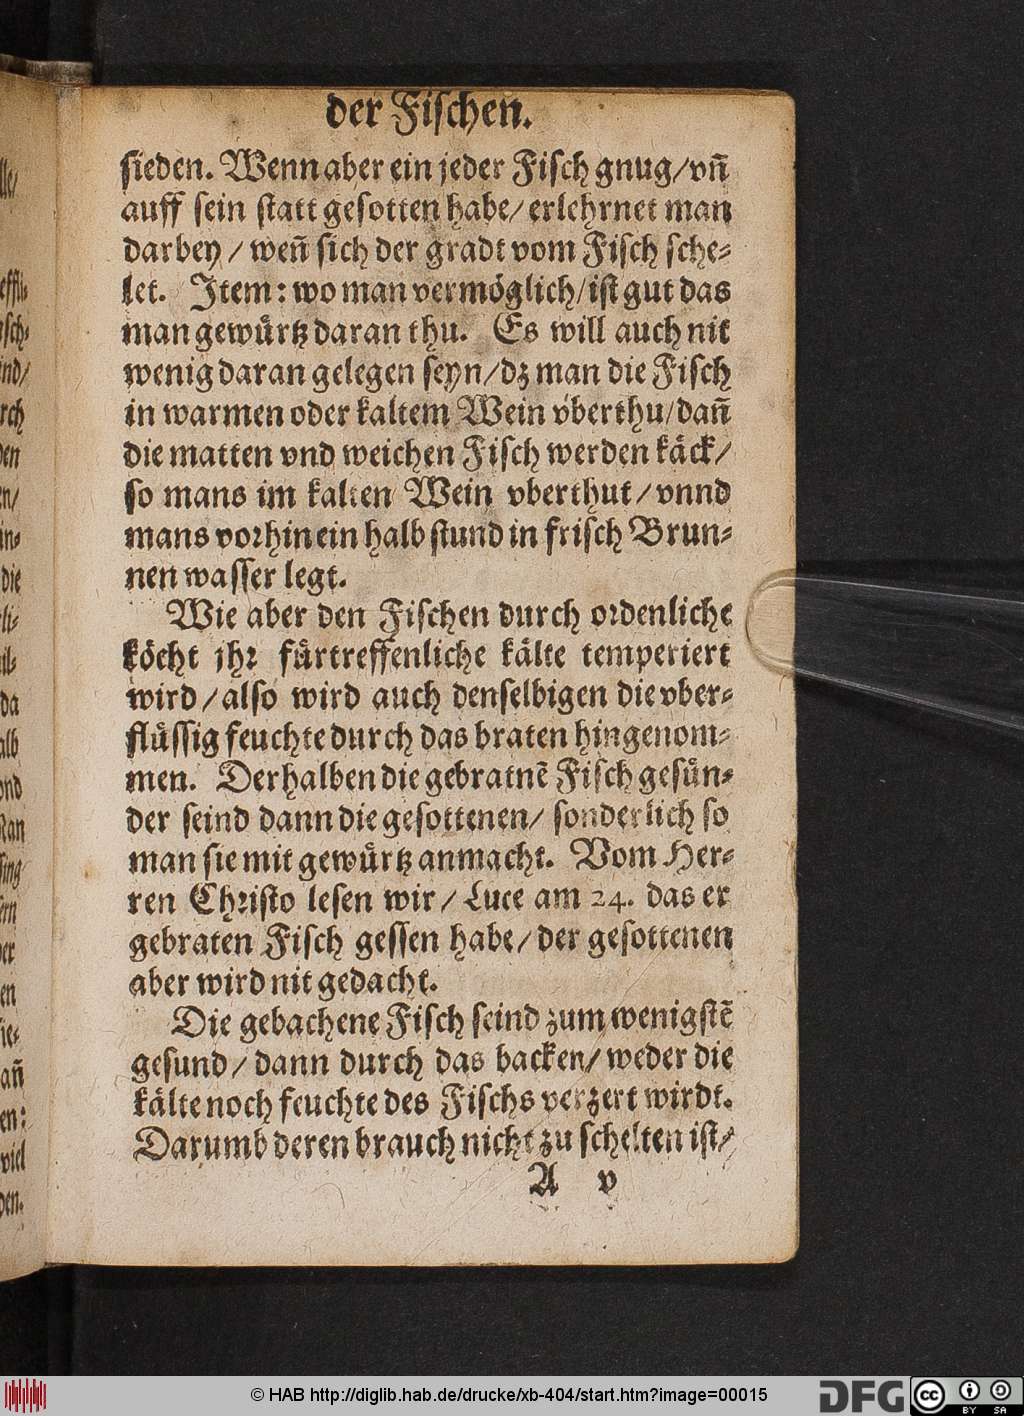 der Fischen.
sieden. Wenn aber ein jeder Fisch gnug/ vñ
auff sein statt gesotten habe/ erlehrnet man
darbey/ weñ sich der gradt vom Fisch sche-
let. Item: wo man vermöglich/ ist gut das
man gewürtz daran thu. Es will auch nit
wenig daran gelegen seyn/ dz man die Fisch
in warmen oder kaltem Wein vberthu/ dañ
die matten vnd weichen Fisch werden käck/
so mans im kalten Wein vberthut/ vnnd
mans vorhin ein halb stund in frisch Brun-
nen wasser legt.
Wie aber den Fischen durch ordenliche
köcht jhr fürtreffenliche kälte temperiert
wird/ also wird auch denselbigen die vber-
flüssig feuchte durch das braten hingenom-
men. Derhalben die gebratnē Fisch gesün-
der seind dann die gesottenen/ sonderlich so
man sie mit gewürtz anmacht. Vom Her-
ren Christo lesen wir/ Luce am 24. das er
gebraten Fisch gessen habe/ der gesottenen
aber wird nit gedacht.
Die gebachene Fisch seind zum wenigstē
gesund/ dann durch das backen/ weder die
kälte noch feuchte des Fischs verzert wirdt.
Darumb deren brauch nicht zu schelten ist/
A v
© HAB http://diglib.hab.de/drucke/xb-404/start.htm?image=00015
DFG
cc BY SA